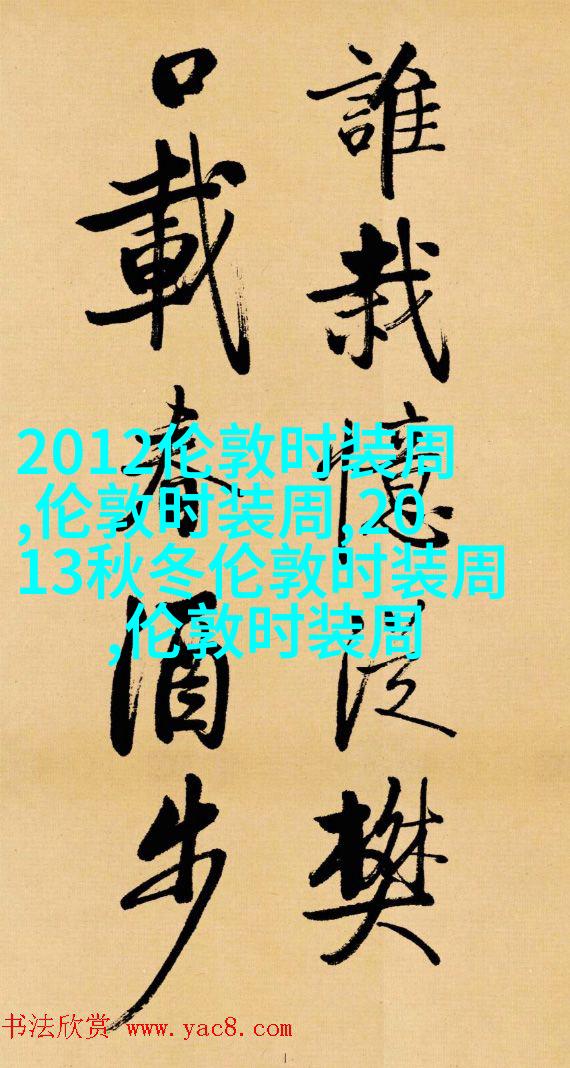 誰栽憶泛樊
口載春酒步
2012伦敦时装周
,伦敦时装周,20
13秋冬伦敦时装周
,伦敦时装周
书法欣赏 www.yac8.com